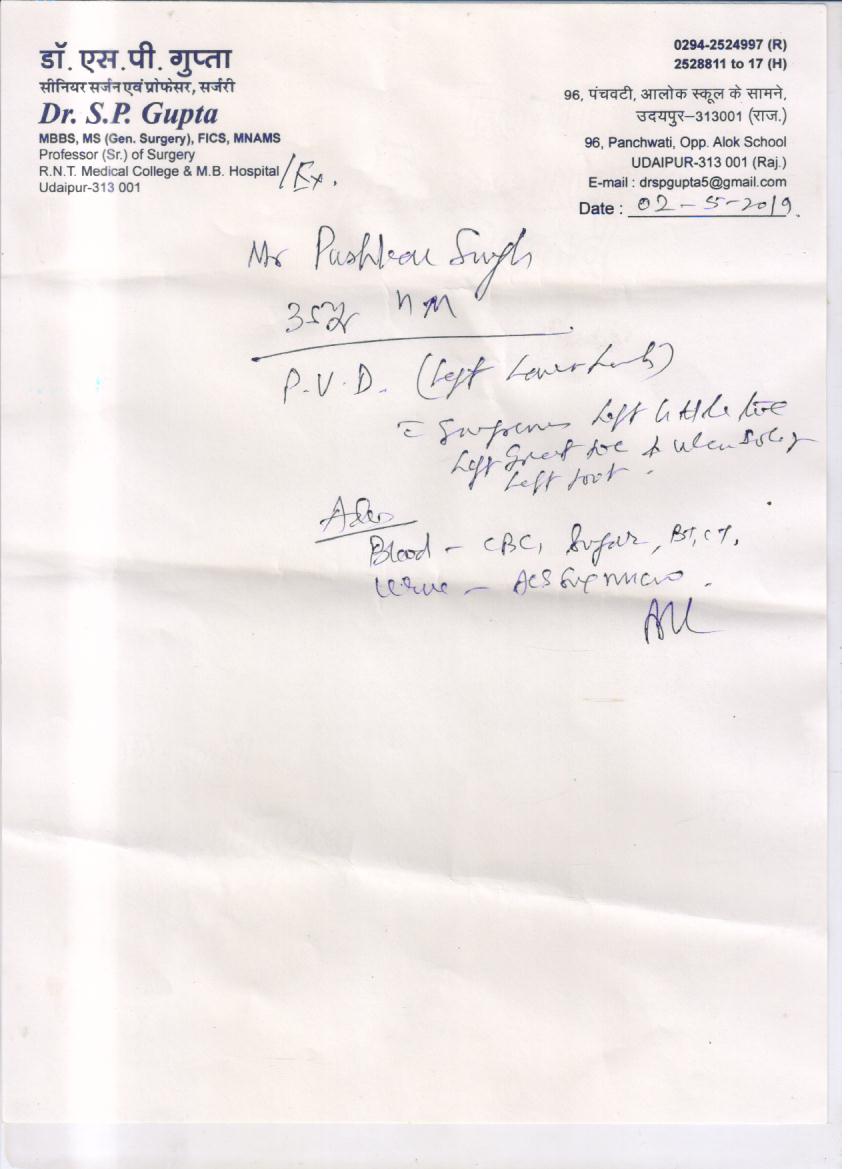 डॉ. एस.पी. गुप्ता
सीनियर सर्जन एवं प्रोफेसर, सर्जरी
Dr. S.P. Gupta
MBBS, MS (Gen. Surgery), FICS, MNAMS
Professor (Sr.) of Surgery
R.N.T. Medical College & M.B. Hospital /Ex.
Udaipur-313 001
0294-2524997 (R)
2528811 to 17 (H)
96, पंचवटी, आलोक स्कूल के सामने,
उदयपुर–313001 (राज.)
96, Panchwati, Opp. Alok School
UDAIPUR-313 001 (Raj.)
E-mail : drspgupta5@gmail.com
Date : 02-5-2019.
Mr Pushkar Singh
35yr
P.V.D. (Left Lower Limb)
Left little toe
Left Great toe & ulcer Sole of
Left foot.
Adv
Blood - CBC, Sugar, BT, CT,
Urine -